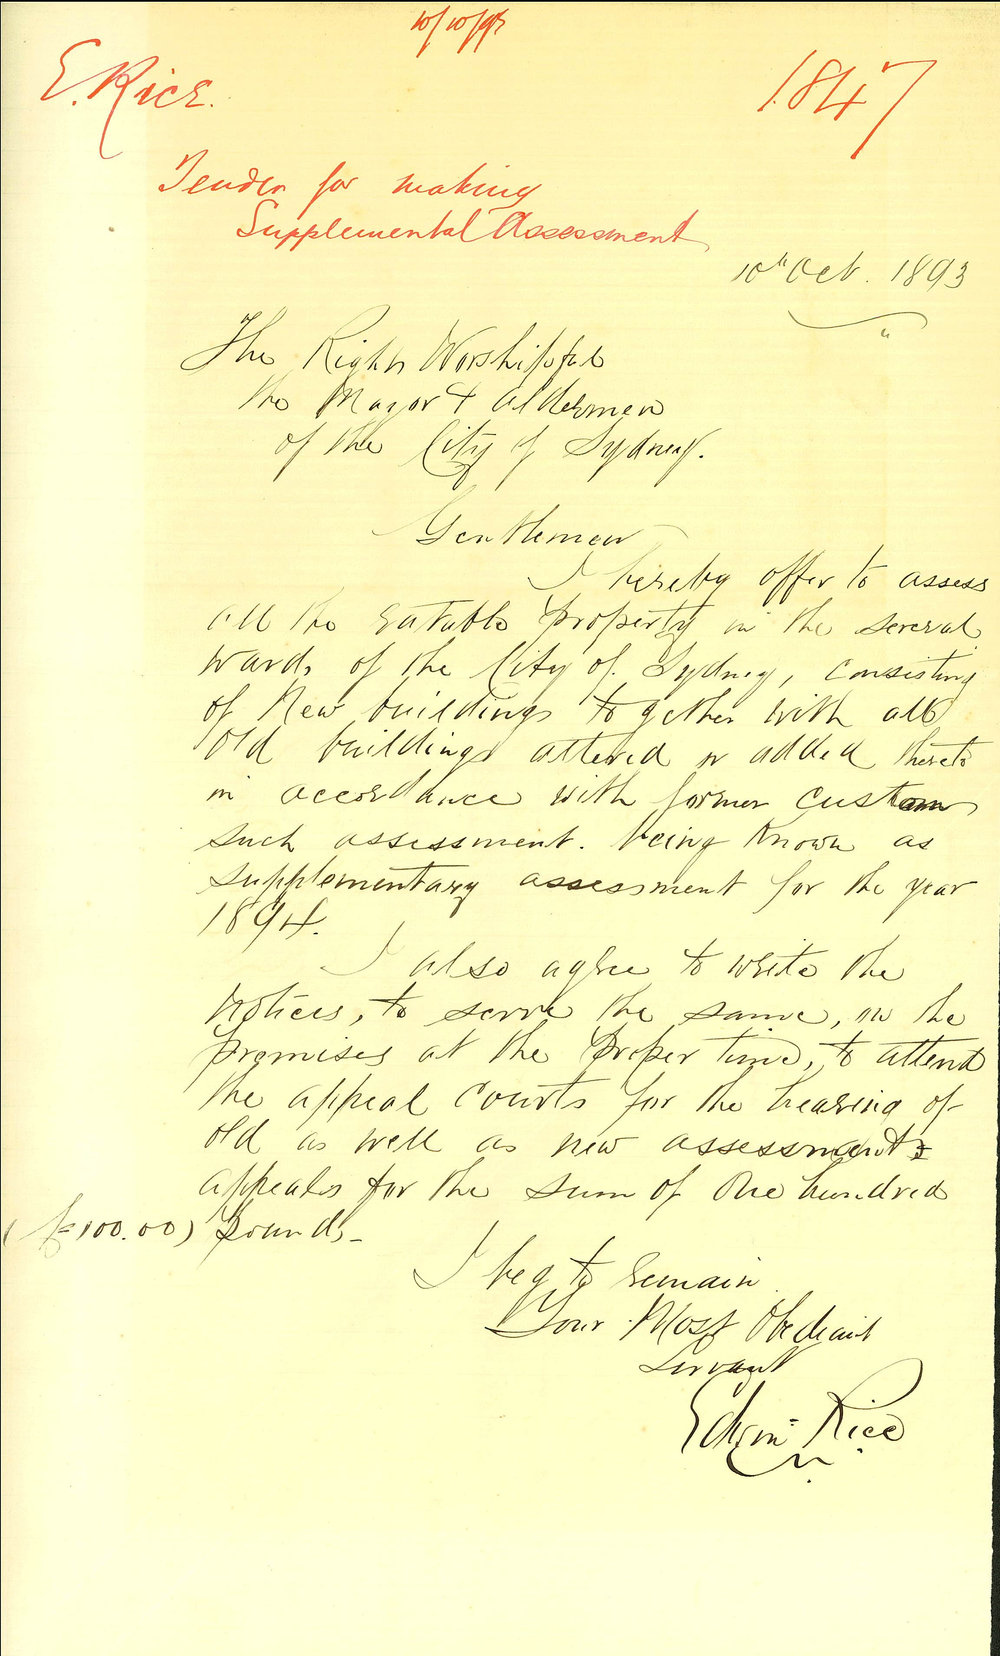 10/10/93
E. Rice.
1847
Tender for making
Supplemental Assessment
10th Oct. 1893
The Right Worshipful
the Mayor & Aldermen
of the City of Sydney.
Gentlemen
I hereby offer to assess
all the ratable property in the several
wards of the City of Sydney, consisting
of New buildings together with all
old buildings altered or added thereto
in accordance with former custom
such assessment. being known as
supplementary assessment for the year
1894.
I also agree to write the
notices, to serve the same, on the
premises at the proper time, to attend
the appeal courts for the hearing of
old as well as new assessments
appeales for the sum of One hundred
(£100.00) pounds_
I beg to remain
Your Most Obediant
Servant
Edwin Rice